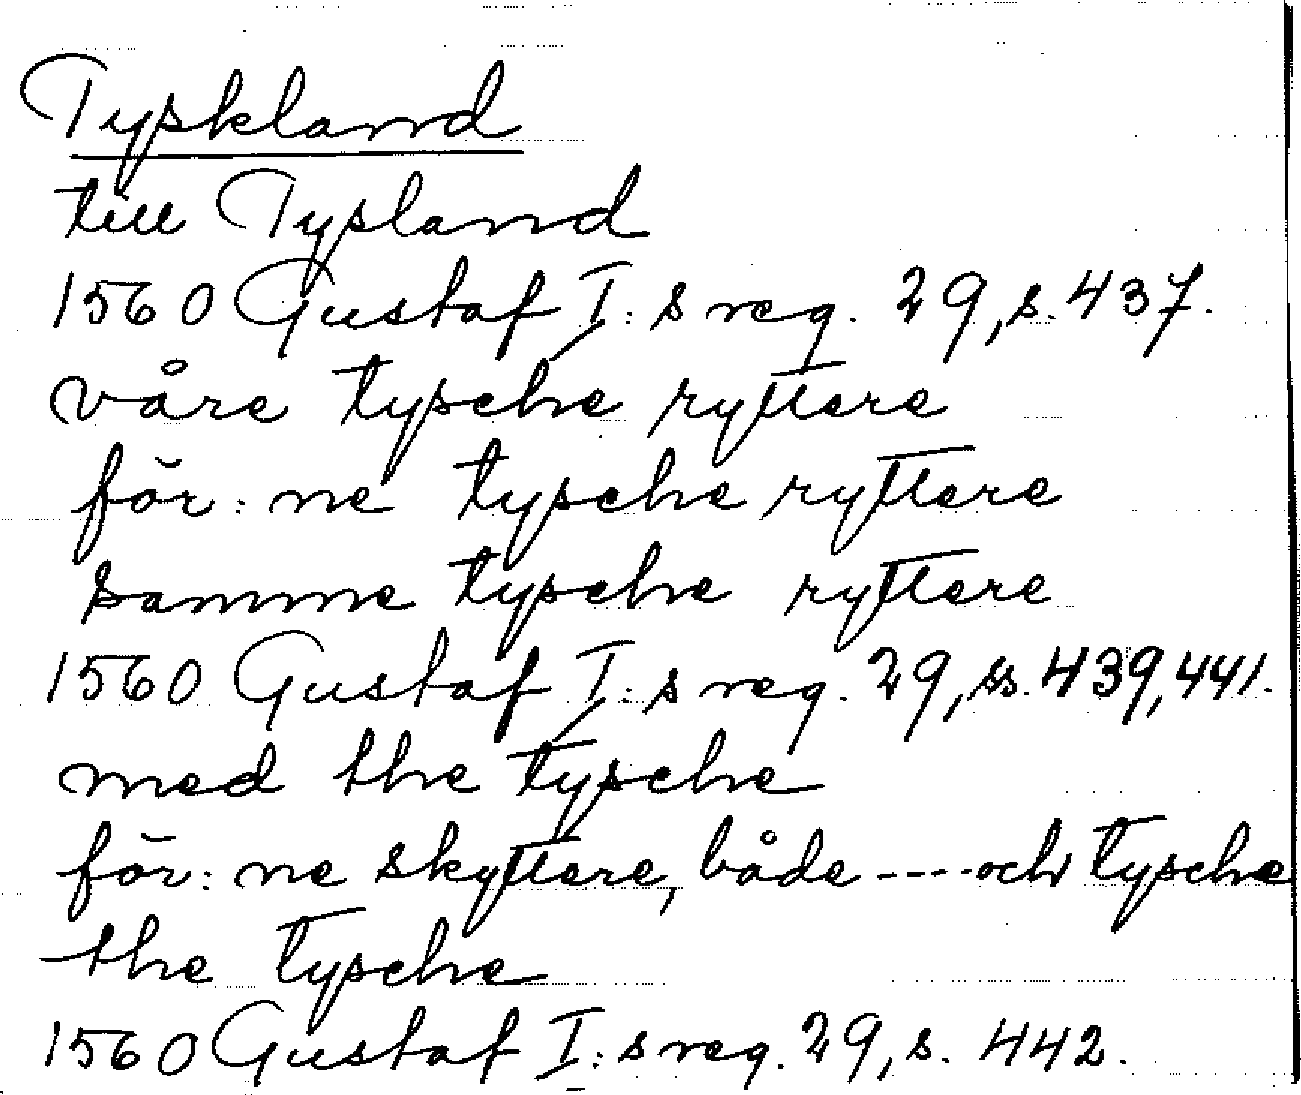 Tyskland
till Tysland
1560 Gustaf I:s reg. 29, s. 437.
våre tysche ryttere
för:ne tysche ryttere
samme tysche ryttere
1560 Gustaf I:s reg. 29, ss. 439, 441.
med the tysche
för:ne skyttere, både ---- och tysche
the tysche
1560 Gustaf I:s reg. 29, s. 442.